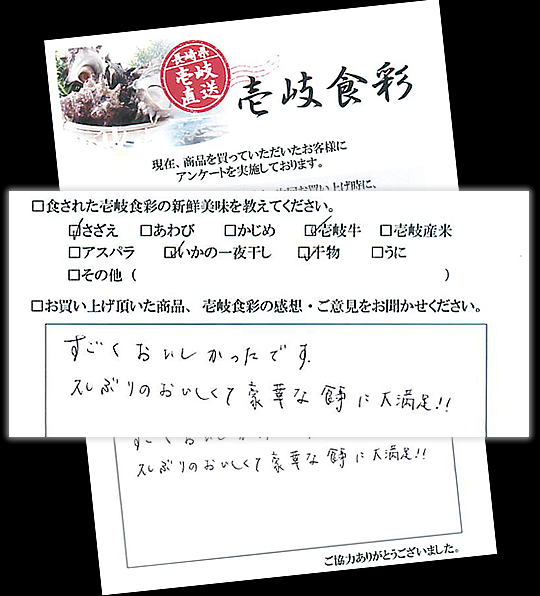 長崎県
壱岐
直送
壱岐食彩
現在、商品を買っていただいたお客様に
アンケートを実施しております。
□食された壱岐食彩の新鮮美味を教えてください。
☑さざえ □あわび □かじめ ☑壱岐牛 □壱岐産米
□アスパラ ☑いかの一夜干し ☑干物 □うに
□その他（　）
□お買い上げ頂いた商品、壱岐食彩の感想・ご意見をお聞かせください。
すごくおいしかったです。
久しぶりのおいしくて豪華な食事に大満足!!
すごくおいしかっ
久しぶりのおいしくて豪華な食事に大満足!!
ご協力ありがとうございました。